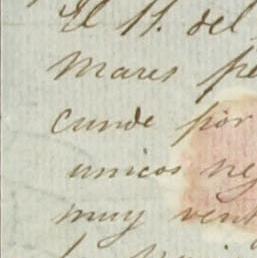 El 11. del
Mares pe
cunde por
unicos ne
muy vent